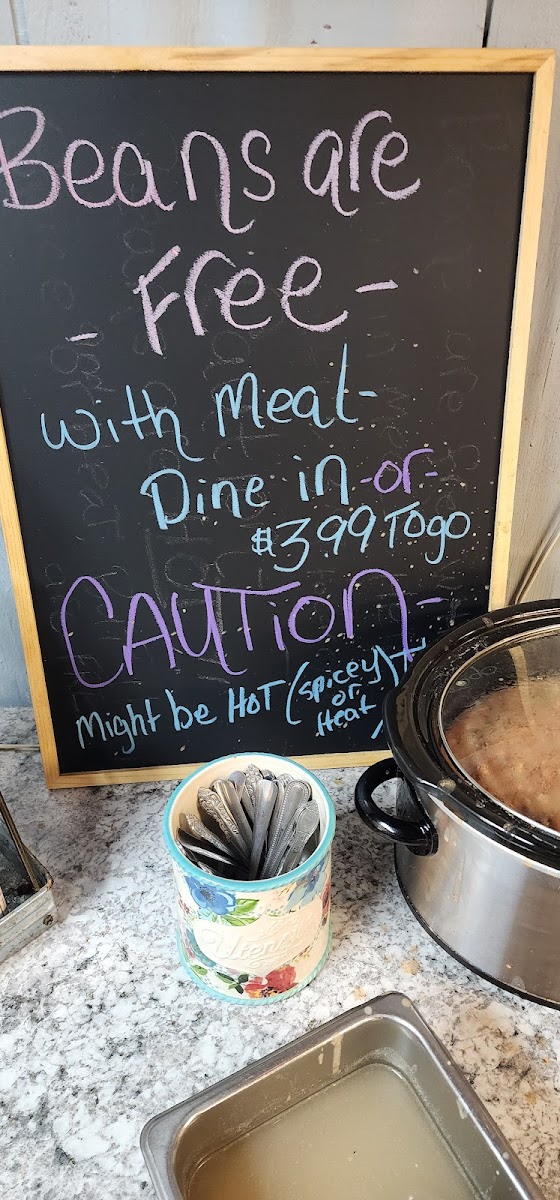 Beans are
- Free -
with Meat -
Dine in -or-
$3.99 Togo
CAUTION -
Might be HOT (spicey)
or
Heat
Utensils